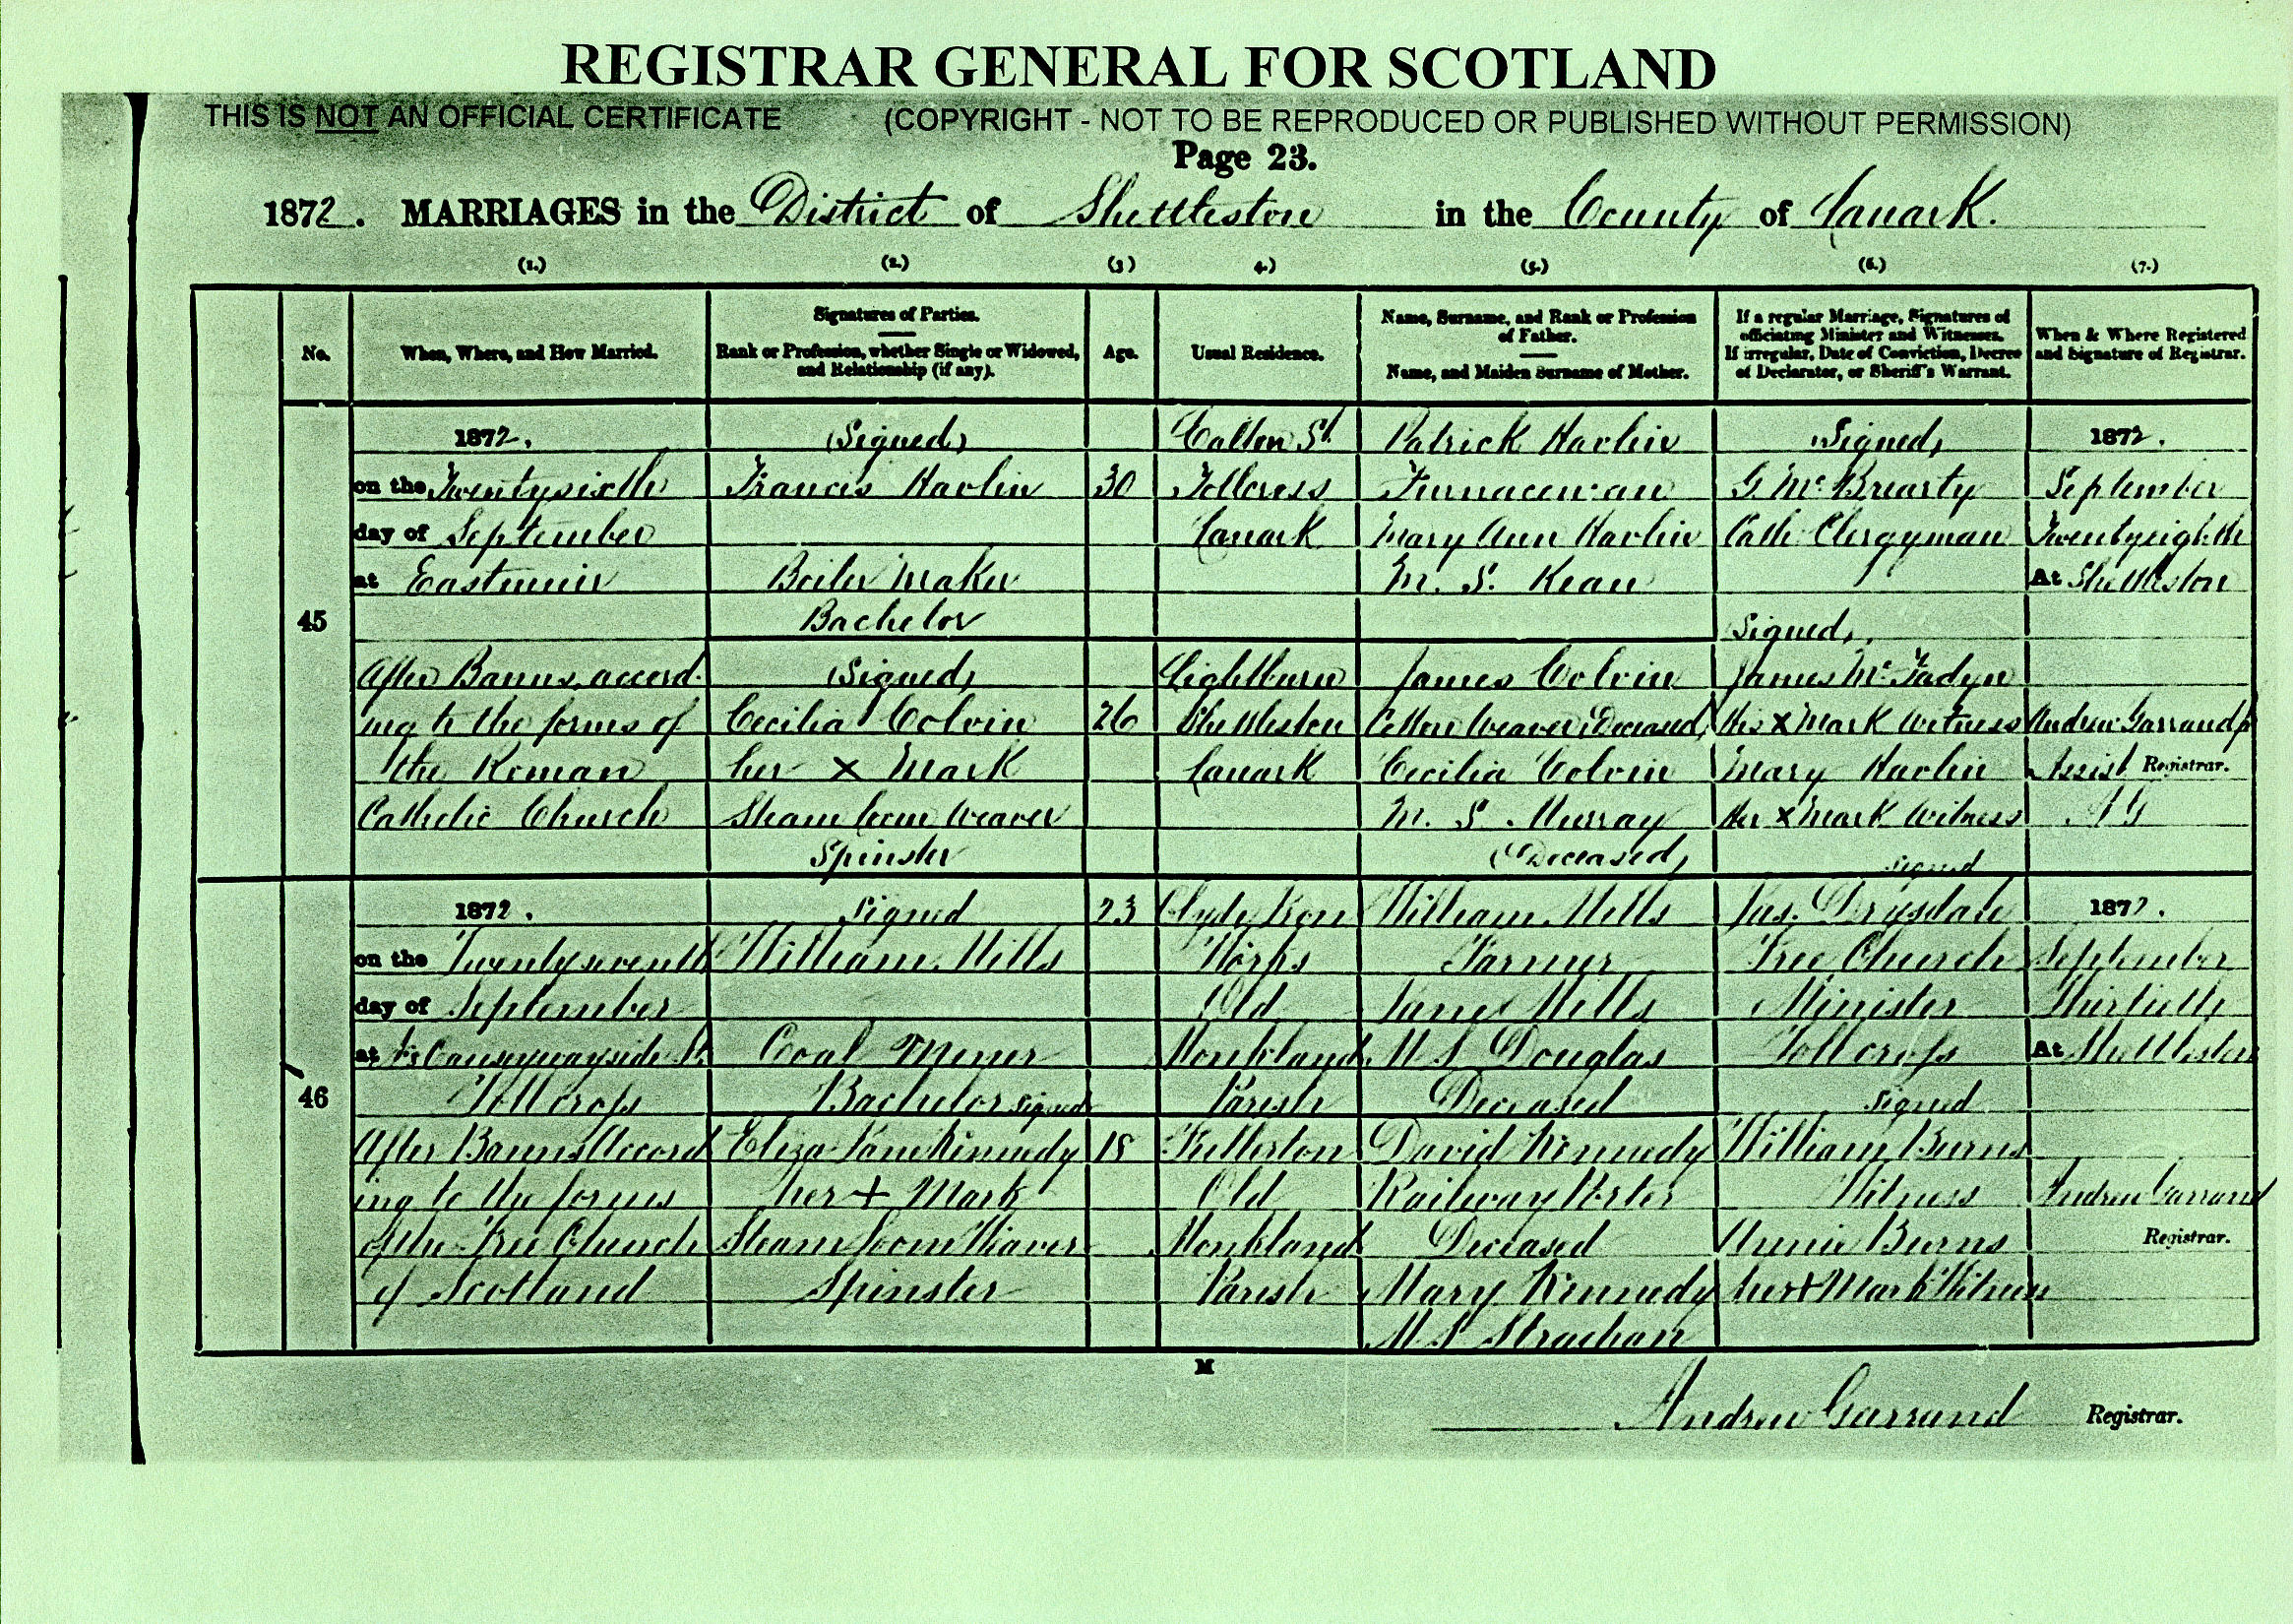 REGISTRAR GENERAL FOR SCOTLAND
THIS IS NOT AN OFFICIAL CERTIFICATE (COPYRIGHT - NOT TO BE REPRODUCED OR PUBLISHED WITHOUT PERMISSION)
Page 23.
1872. MARRIAGES in the District of Shettleston in the County of Lanark.
(1.) (2.) (3) 4.) (5.) (6.) (7.)
No.
When, Where, and How Married.
Signatures of Parties.
Rank or Profession, whether Single or Widowed,
and Relationship (if any).
Age.
Usual Residence.
Name, Surname, and Rank or Profession
of Father.
Name, and Maiden Surname of Mother.
If a regular Marriage, Signatures of
officiating Minister and Witnesses.
If irregular, Date of Conviction, Decree
of Declarator, or Sheriff's Warrant.
When & Where Registered
and Signature of Registrar.
45
1872.
on the Twentysixth
day of September
at Eastmuir
After Banns, accord-
ing to the forms of
the Roman
Catholic Church
(Signed)
Francis Havlin
Boiler Maker
Bachelor
(Signed)
Cecilia Colvin
her x Mark
Steam Loom Weaver
Spinster
30
26
Calton St.
Tollcross
Lanark
Lightburn
Shettleston
Lanark
Patrick Havlin
Furnaceman
Mary Ann Havlin
M. S. Kean
James Colvin
Cotton Weaver (Deceased)
Cecilia Colvin
M. S. Murray
(Deceased)
(Signed)
G. McBrearty
Cath. Clergyman
(Signed)
James McFadyn
His x Mark Witness
Mary Havlin
Her x Mark Witness
1872.
September
Twentyeighth
At Shettleston
Andrew Garrand
Assist Registrar.
A G
46
1872.
on the Twentyseventh
day of September
at Causewayside St.
Tollcross
After Banns Accord
ing to the forms
of the Free Church
of Scotland
Signed
William Mills
Coal Miner
Bachelor signed
Eliza Jane Kennedy
her + Mark
Steam Loom Weaver
Spinster
23
18
Clyde Iron
Works
Old
Monkland
Parish
Fullerton
Old
Monkland
Parish
William Mills
Farmer
Jane Mills
M. S. Douglas
Deceased
David Kennedy
Railway Porter
Deceased
Mary Kennedy
M. S. Strachan
signed
Jas. Drysdale
Free Church
Minister
Tollcross
signed
William Burns
Witness
Annie Burns
her + Mark Witness
1872.
September
Thirtieth
At Shettleston
Andrew Garrand
Registrar.
M
Andrew Garrand Registrar.